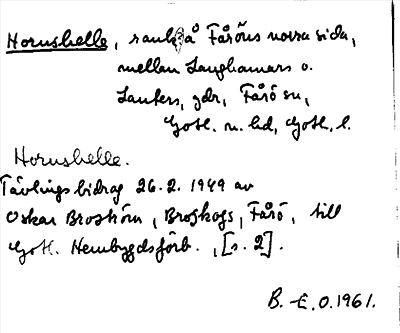 Hornshelle, rauk på Fåröns norra sida,
mellan Langhamars o.
Lauters, gdr, Fårö sn,
Gotl. n. hd, Gotl. l.
Hornshelle.
Tävlingsbidrag 26.2.1949 av
Oskar Broström, Broskogs, Fårö, till
Gotl. Hembygdsförb., [s. 2].
B. E. O. 1961.